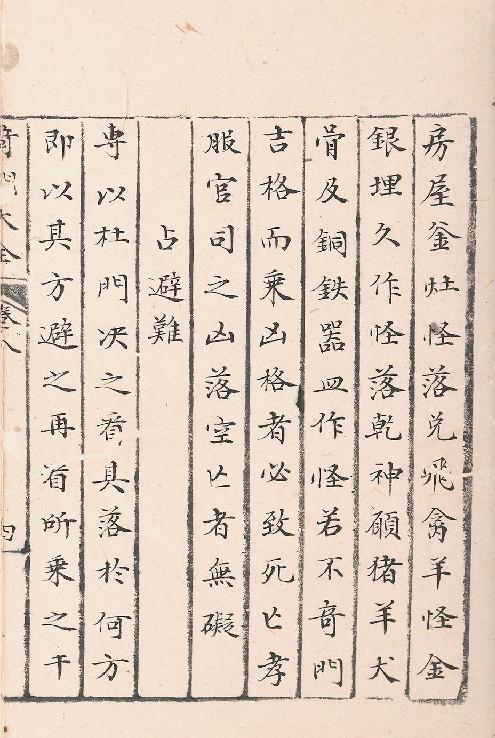 房屋釜灶怪落兑飛禽羊怪金
銀埋久作怪落乾神願猪羊犬
骨及銅鉄器皿作怪若不竒門
吉格而乗凶格者必致死亡孝
服官司之凶落空亡者無礙
占避難
専以杜門决之看具落扵何方
即以其方避之再看所乗之干
竒門大全 卷八 四